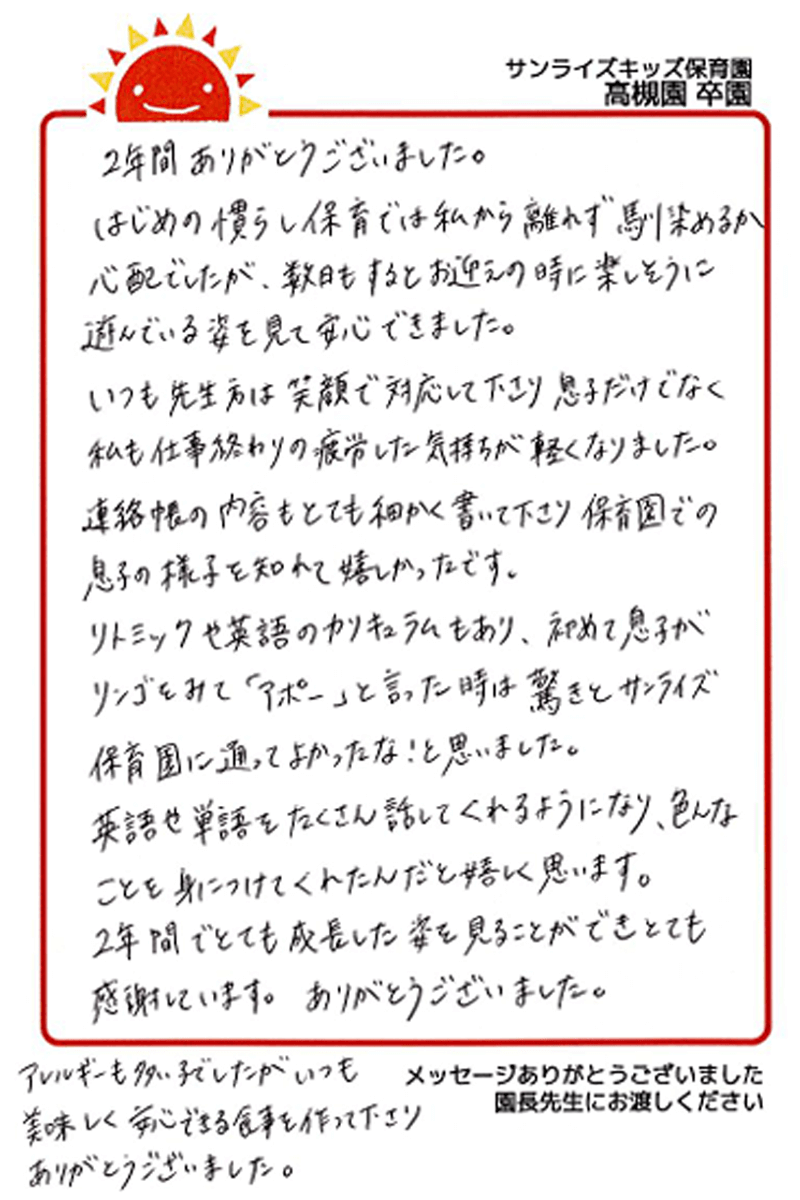 サンライズキッズ保育園
高槻園 卒園
2年間 ありがとうございました。
はじめの慣らし保育では私から離れず馴染めるか
心配でしたが、数日もするとお迎えの時に楽しそうに
遊んでいる姿を見て安心できました。
いつも先生方は笑顔で対応して下さり息子だけでなく
私も仕事終わりの疲労した気持ちが軽くなりました。
連絡帳の内容もとても細かく書いて下さり保育園での
息子の様子を知れて嬉しかったです。
リトミックや英語のカリキュラムもあり、初めて息子が
リンゴをみて「アポー」と言った時は驚きとサンライズ
保育園に通ってよかったな!と思いました。
英語や単語をたくさん話してくれるようになり、色んな
ことを身につけてくれたんだと嬉しく思います。
2年間でとても成長した姿を見ることができとても
感謝しています。 ありがとうございました。
アレルギーも多い子でしたがいつも
美味しく安心できる食事を作って下さり
ありがとうございました。
メッセージありがとうございました
園長先生にお渡しください